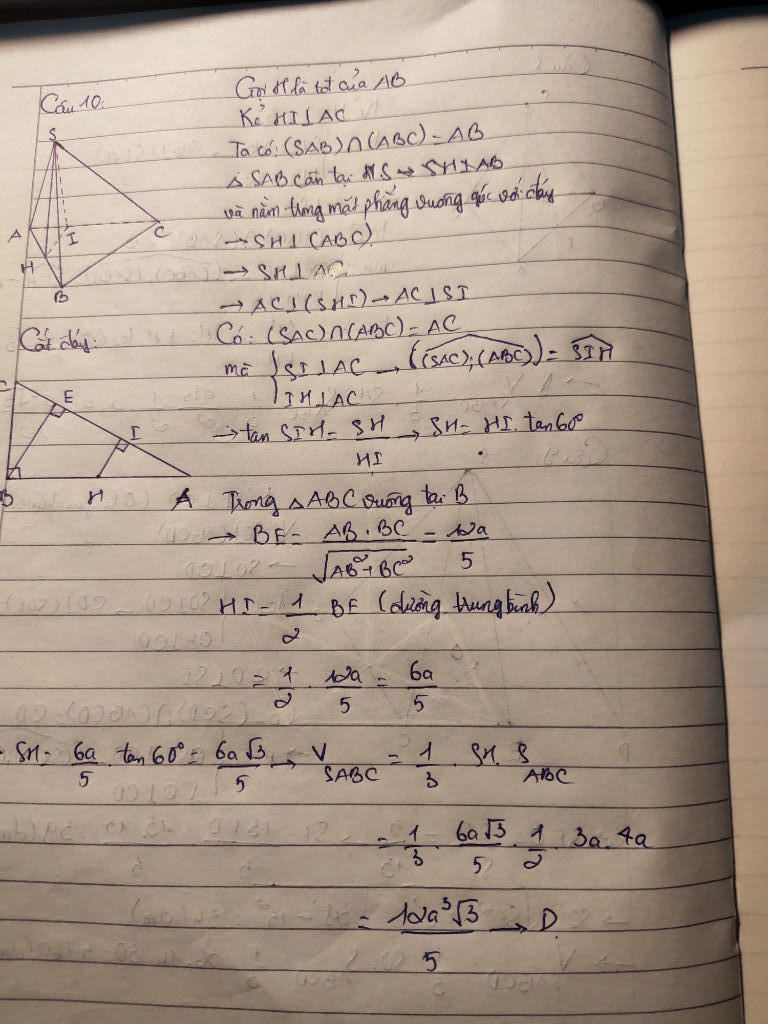 Câu 10:
Gọi H là tđ của AB
Kẻ HI⊥AC
Ta có: (SAB)∩(ABC)=AB
△ SAB cân tại S → SH⊥AB
và nằm trong mặt phẳng vuông góc với đáy
→ SH⊥(ABC)
→ SH⊥AC
→ AC⊥(SHI)→AC⊥SI
Có: (SAC)∩(ABC)=AC
mà { SI⊥AC → ((SAC);(ABC)) = SIH
IH⊥AC
→ tan SIH = SH/HI → SH = HI. tan60°
S
A
I
C
H
B
Cắt đáy:
C
E
I
B
H
A
Trong △ABC vuông tại B
→ BE = AB . BC/√AB²+BC² = 12a/5
HI = 1/2 . BE (đường trung bình)
= 1/2 . 12a/5 = 6a/5
SH = 6a/5 . tan60° = 6a√3/5 → V SABC = 1/3 . SH. S ABC
= 1/3 . 6a√3/5 . 1/2 . 3a. 4a
= 12a³√3/5 → D.